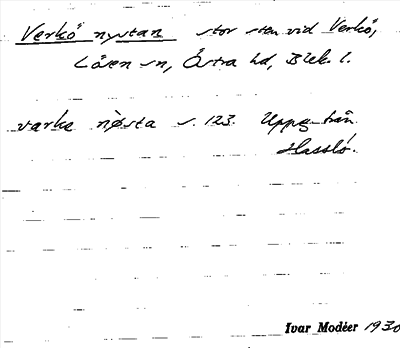 Verkö nystan stor sten vid Verkö,
Lösen sn, Östra hd, Blek. l.
varke nøsta s. 123. Uppg. från
Hasslö.
Ivar Modéer 1930